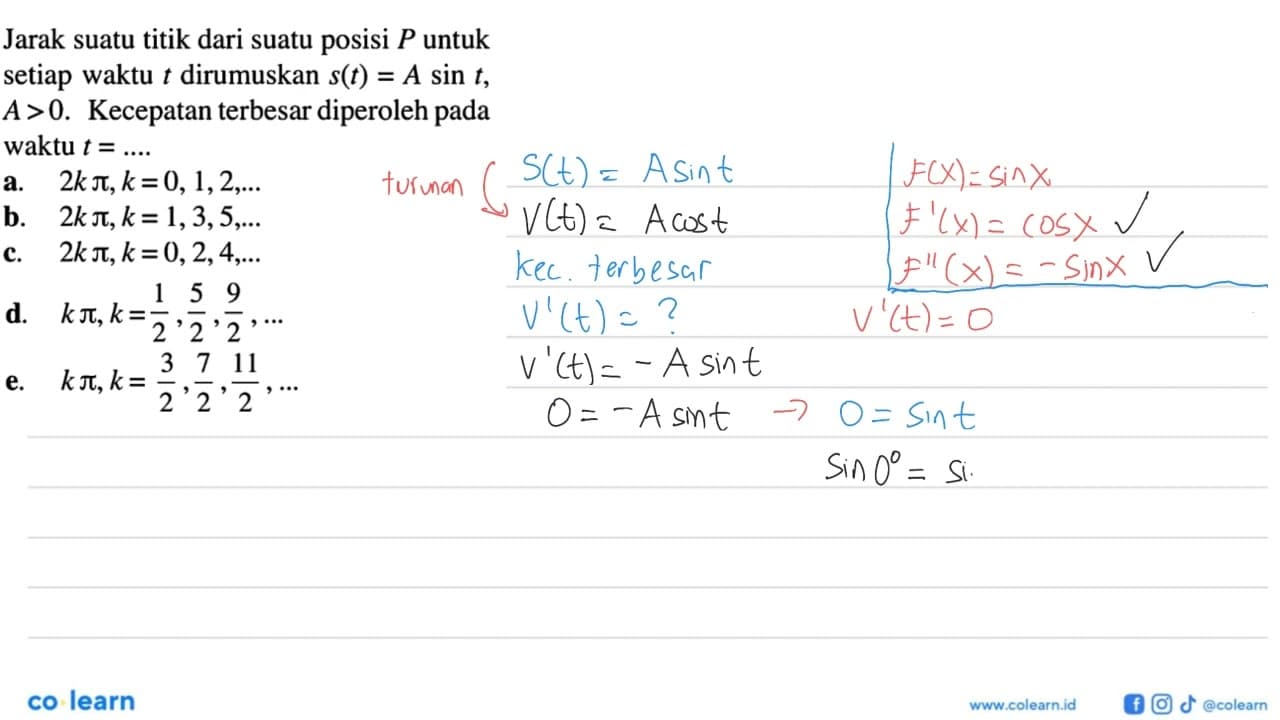 Jarak suatu titik dari suatu posisi P untuk
setiap waktu t dirumuskan s(t) = A sin t,
A > 0. Kecepatan terbesar diperoleh pada
waktu t = ....
a. 2k π, k = 0, 1, 2,...
b. 2k π, k = 1, 3, 5,...
c. 2k π, k = 0, 2, 4,...
d. k π, k = 1/2, 5/2, 9/2, ...
e. k π, k = 3/2, 7/2, 11/2, ...
turunan
S(t) = A sin t
V(t) = A cos t
kec. terbesar
V'(t) = ?
V'(t) = - A sin t
0 = - A sin t → 0 = sin t
sin 0° = si
F(x) = sin x
F'(x) = cos x ✓
F''(x) = - sin x ✓
V'(t) = 0
co learn
www.colearn.id
@colearn